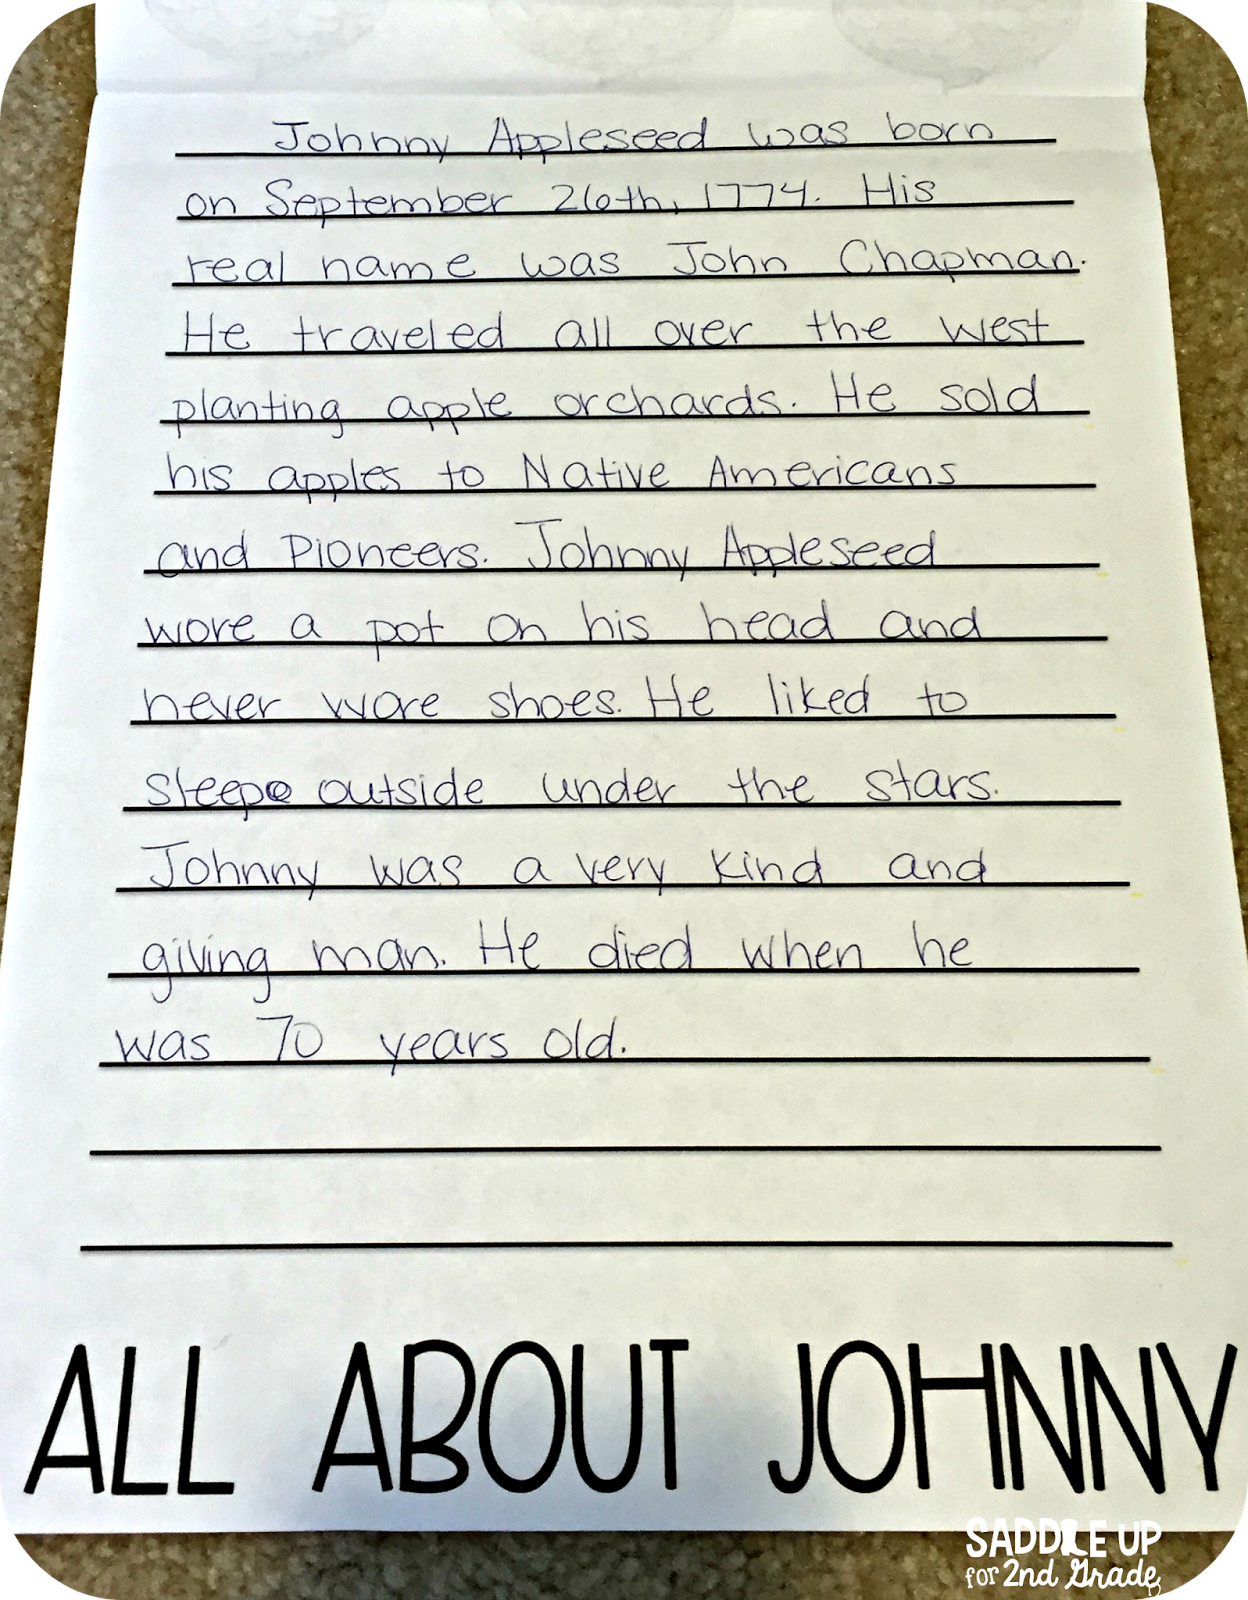 Johnny Appleseed was born
on September 26th, 1774. His
real name was John Chapman.
He traveled all over the west
planting apple orchards. He sold
his apples to Native Americans
and Pioneers. Johnny Appleseed
wore a pot on his head and
never wore shoes. He liked to
sleep outside under the stars.
Johnny was a very kind and
giving man. He died when he
was 70 years old.
ALL ABOUT JOHNNY
SADDLE UP
for 2nd Grade